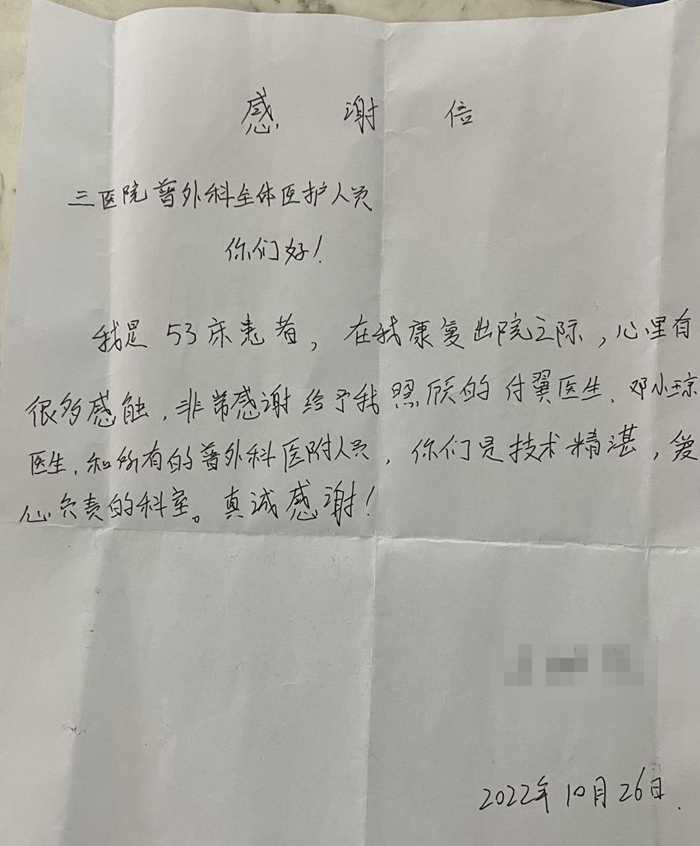 感谢信
三医院普外科全体医护人员
你们好！
我是53床患者，在我康复出院之际，心里有
很多感触，非常感谢给予我照顾的付翼医生、邓小琼
医生，和所有的普外科医附人员，你们是技术精湛，爱
心负责的科室。真诚感谢！
2022年10月26日.